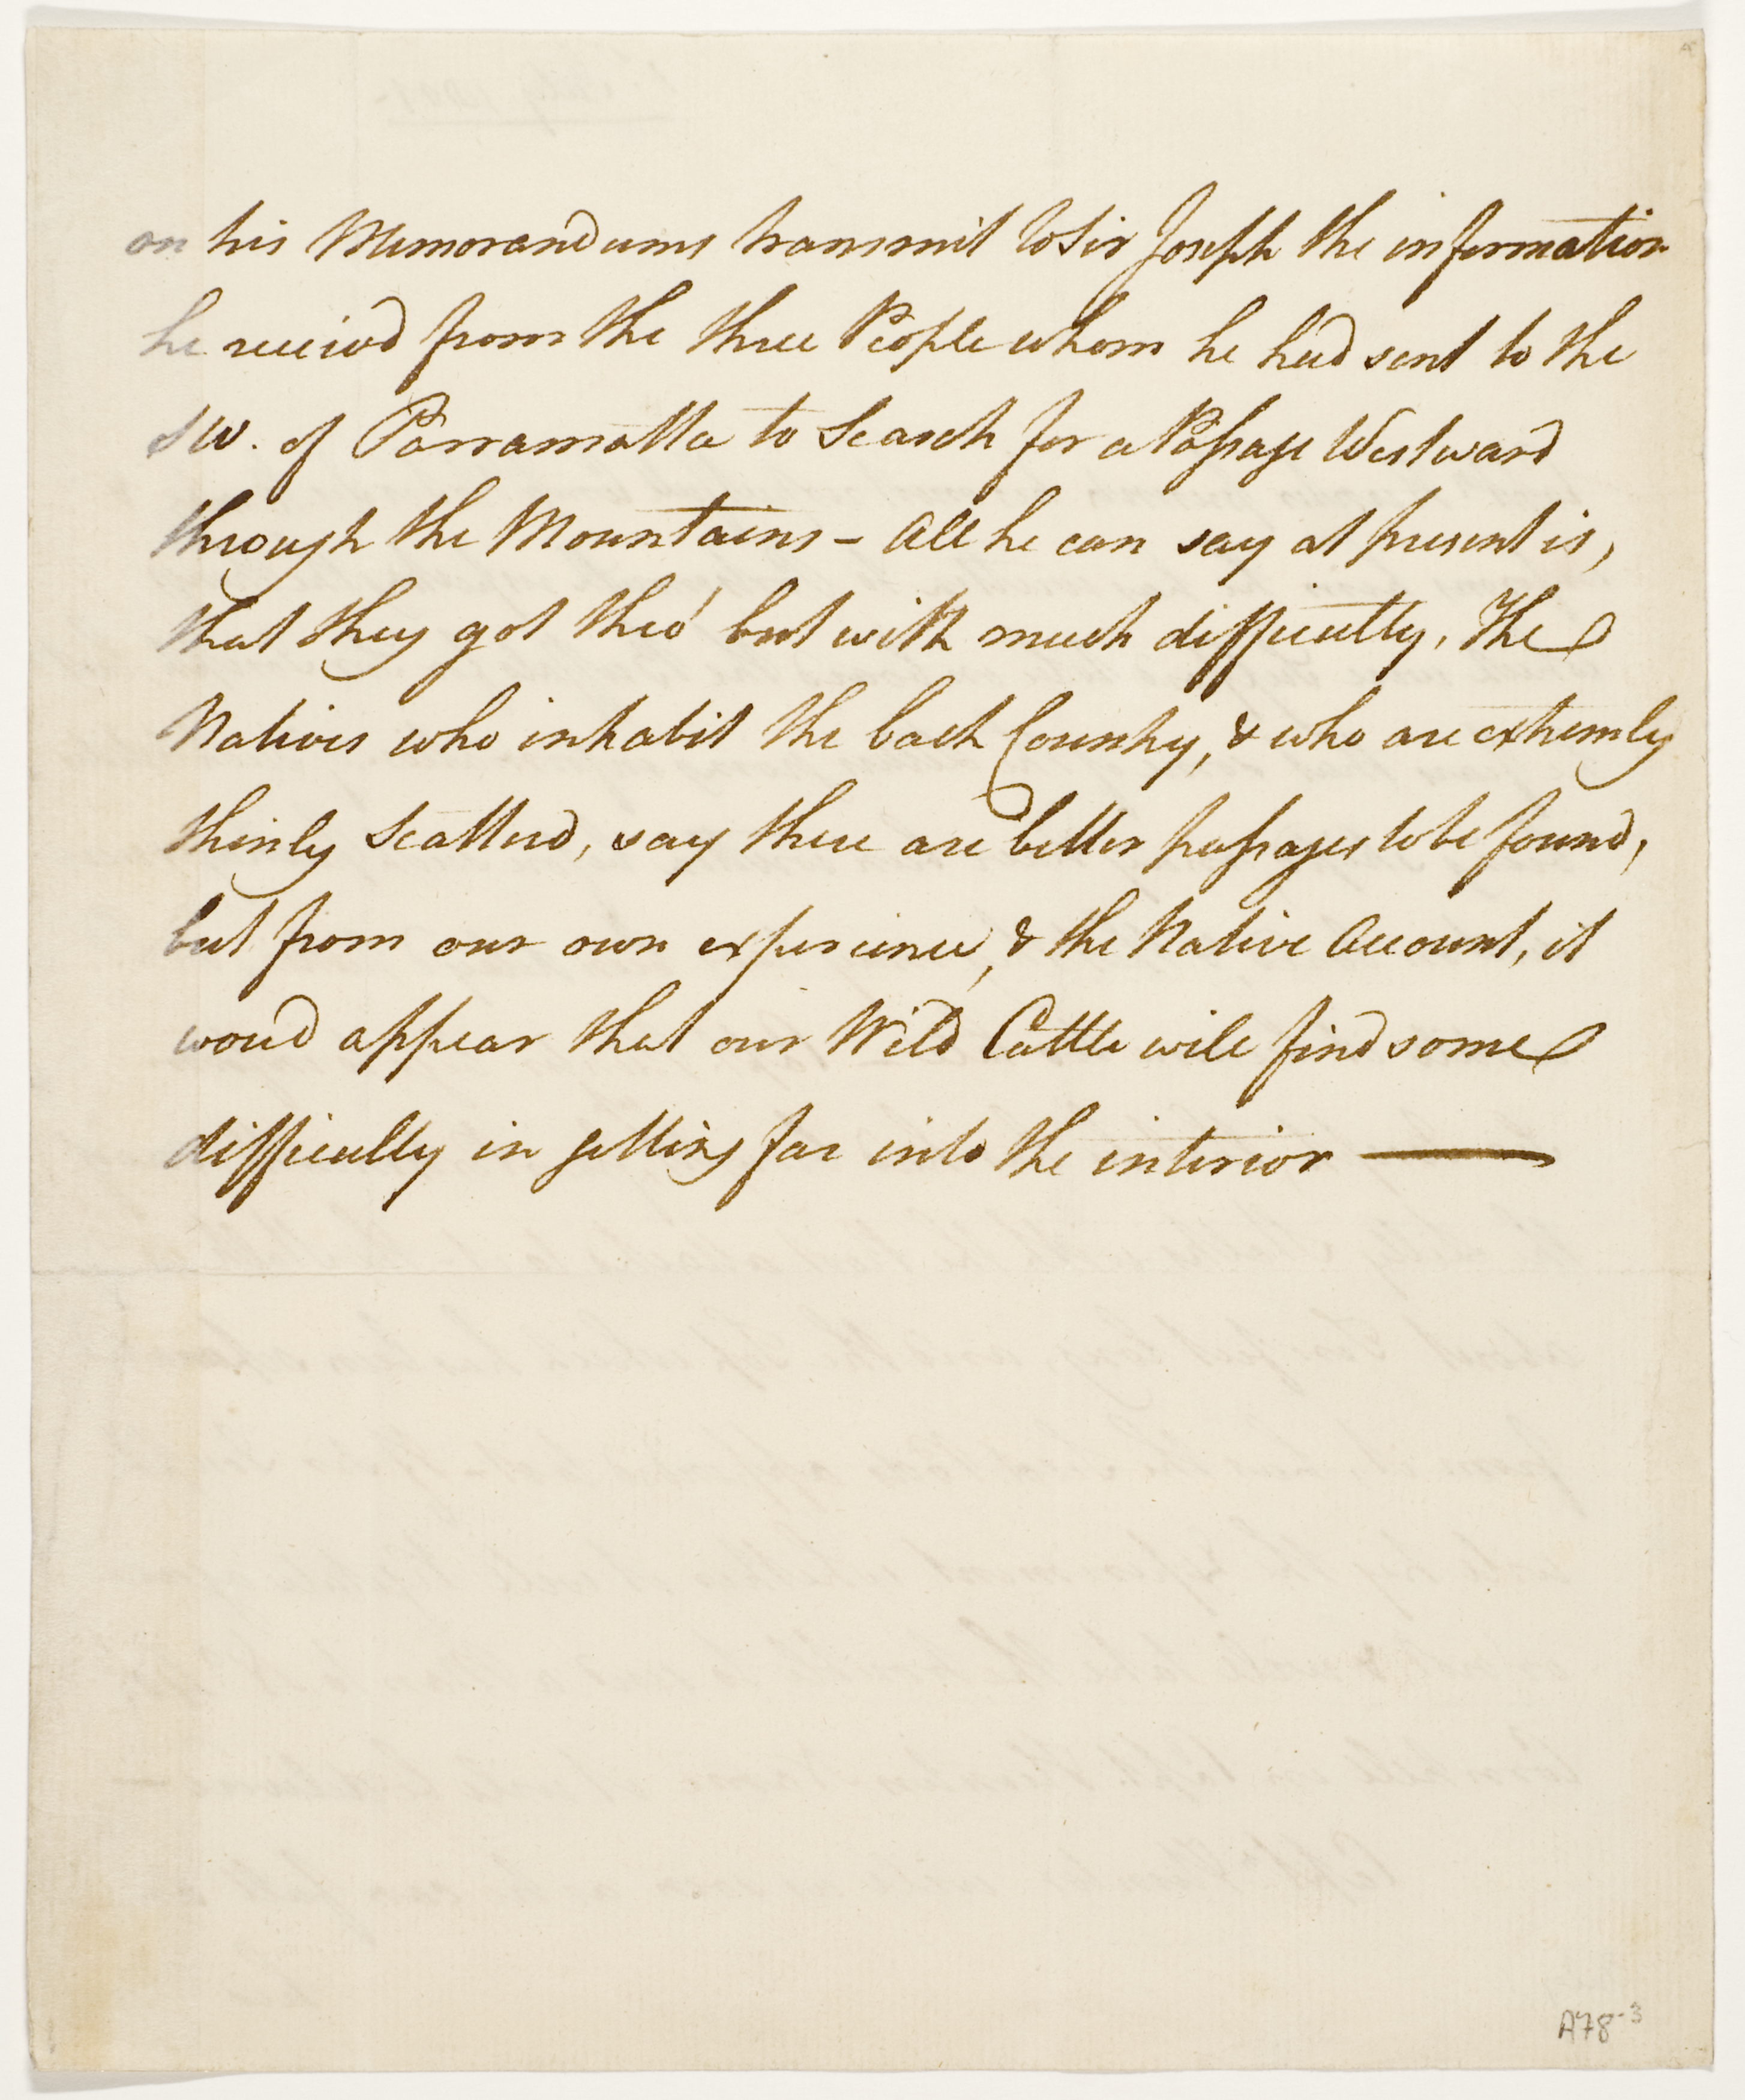 on his Memorandums transmit to Sir Joseph the information
he receivd from the three People whom he had sent to the
SW. of Parramatta to Search for a Passage Westward
through the Mountains - All he can say at present is,
that they got thro' but with much difficulty, The
Natives who inhabit the back Country, & who are extremly
thinly Scatterd, say there are better passages to be found,
but from our own experience, & the Native Account, it
woud appear that our Wild Cattle will find some
difficulty in getting far into the interior —
A78-3